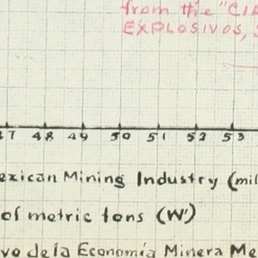 from the "CIA
EXPLOSIVOS, S
47 48 49 50 51 52 53
exican Mining Industry (mil
of metric tons (W)
vo de la Economía Minera Me